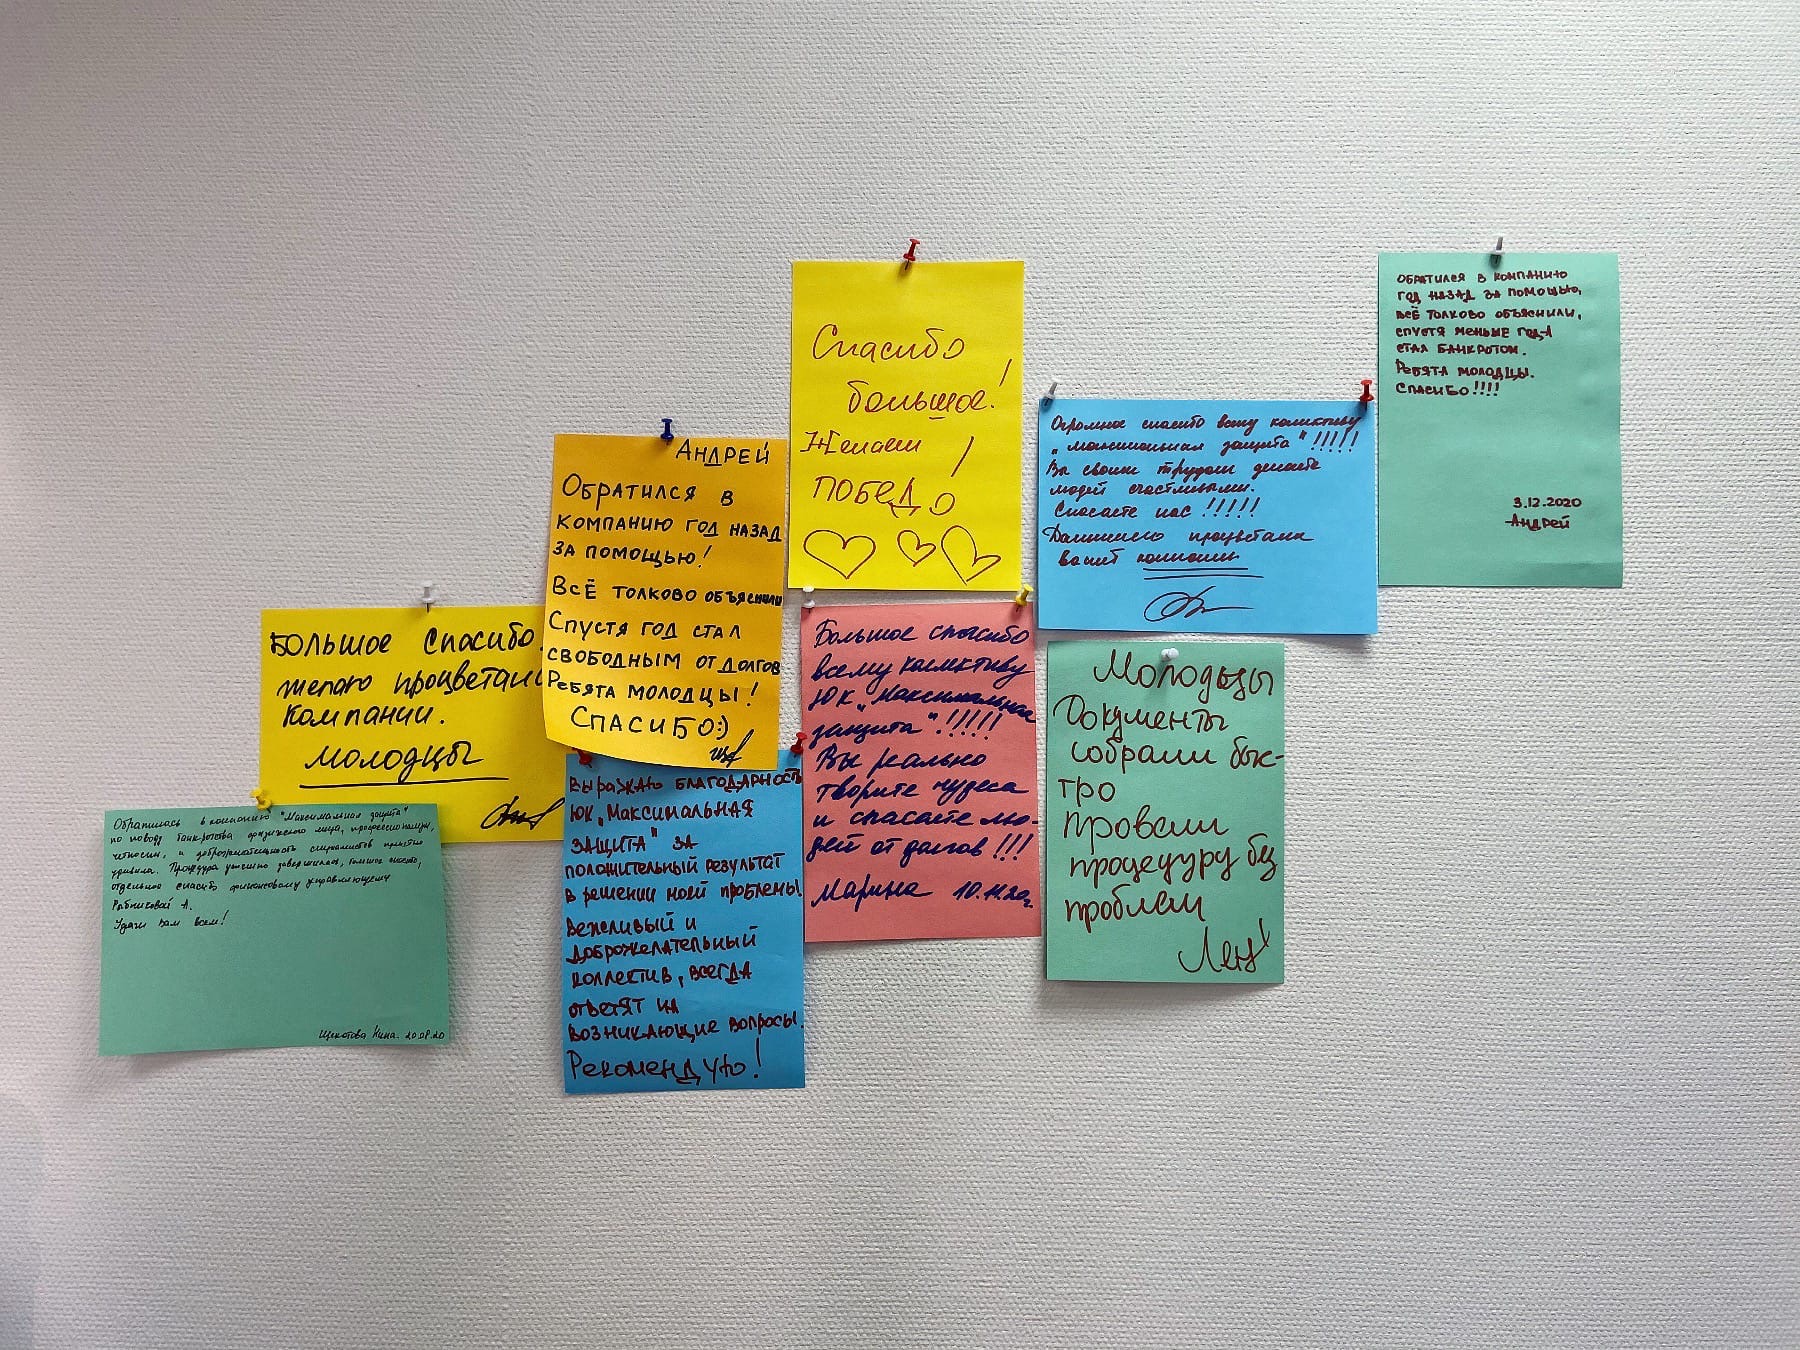 Обратилась в компанию "Максимальная защита"
по поводу банкротства физического лица, профессионализм,
и доброжелательность специалистов приятно
удивила. Процедура успешно завершилась, большое спасибо,
отдельное спасибо финансовому управляющему
А.
Удачи Вам всем!
Щекотова Нина. 20.08.20
БОЛЬШОЕ СПАСИБО.
желаю процветани
Компании.
молодцы
АНДРЕЙ
ОБРАТИЛСЯ В
КОМПАНИЮ ГОД НАЗАД
ЗА ПОМОЩЬЮ!
ВСЁ ТОЛКОВО ОБЪЯСНИЛИ
СПУСТЯ ГОД СТАЛ
СВОБОДНЫМ ОТ ДОЛГОВ
РЕБЯТА МОЛОДЦЫ!
СПАСИБО:)
ВЫРАЖАЮ БЛАГОДАРНОСТЬ
ЮК „МАКСИМАЛЬНАЯ
ЗАЩИТА" ЗА
ПОЛОЖИТЕЛЬНЫЙ РЕЗУЛЬТАТ
В РЕШЕНИИ МОЕЙ ПРОБЛЕМЫ!
ВЕЖЛИВЫЙ И
ДОБРОЖЕЛАТЕЛЬНЫЙ
КОЛЛЕКТИВ, ВСЕГДА
ОТВЕТЯТ НА
ВОЗНИКАЮЩИЕ ВОПРОСЫ.
РЕКОМЕНДУЮ!
Спасибо
большое!
Желаем
ПОБЕД
Большое спасибо
всему коллективу
ЮК „Максимальная
защита"!!!!!
Вы реально
творите чудеса
и спасаете лю-
дей от долгов!!!
Марина 10.11.20г.
Огромное спасибо всему коллективу
„максимальная защита"!!!!!
Вы своим трудом делаете
людей счастливыми.
Спасаете нас!!!!!
Дальнейшего процветания
вашей компании
Молодцы
Документы
собрали быс-
тро
Провели
процедуру без
проблем
ОБРАТИЛСЯ В КОМПАНИЮ
ГОД НАЗАД ЗА ПОМОЩЬЮ,
ВСЁ ТОЛКОВО ОБЪЯСНИЛИ,
СПУСТЯ МЕНЬШЕ ГОДА
СТАЛ БАНКРОТОМ.
РЕБЯТА МОЛОДЦЫ.
СПАСИБО!!!!
3.12.2020
АНДРЕЙ